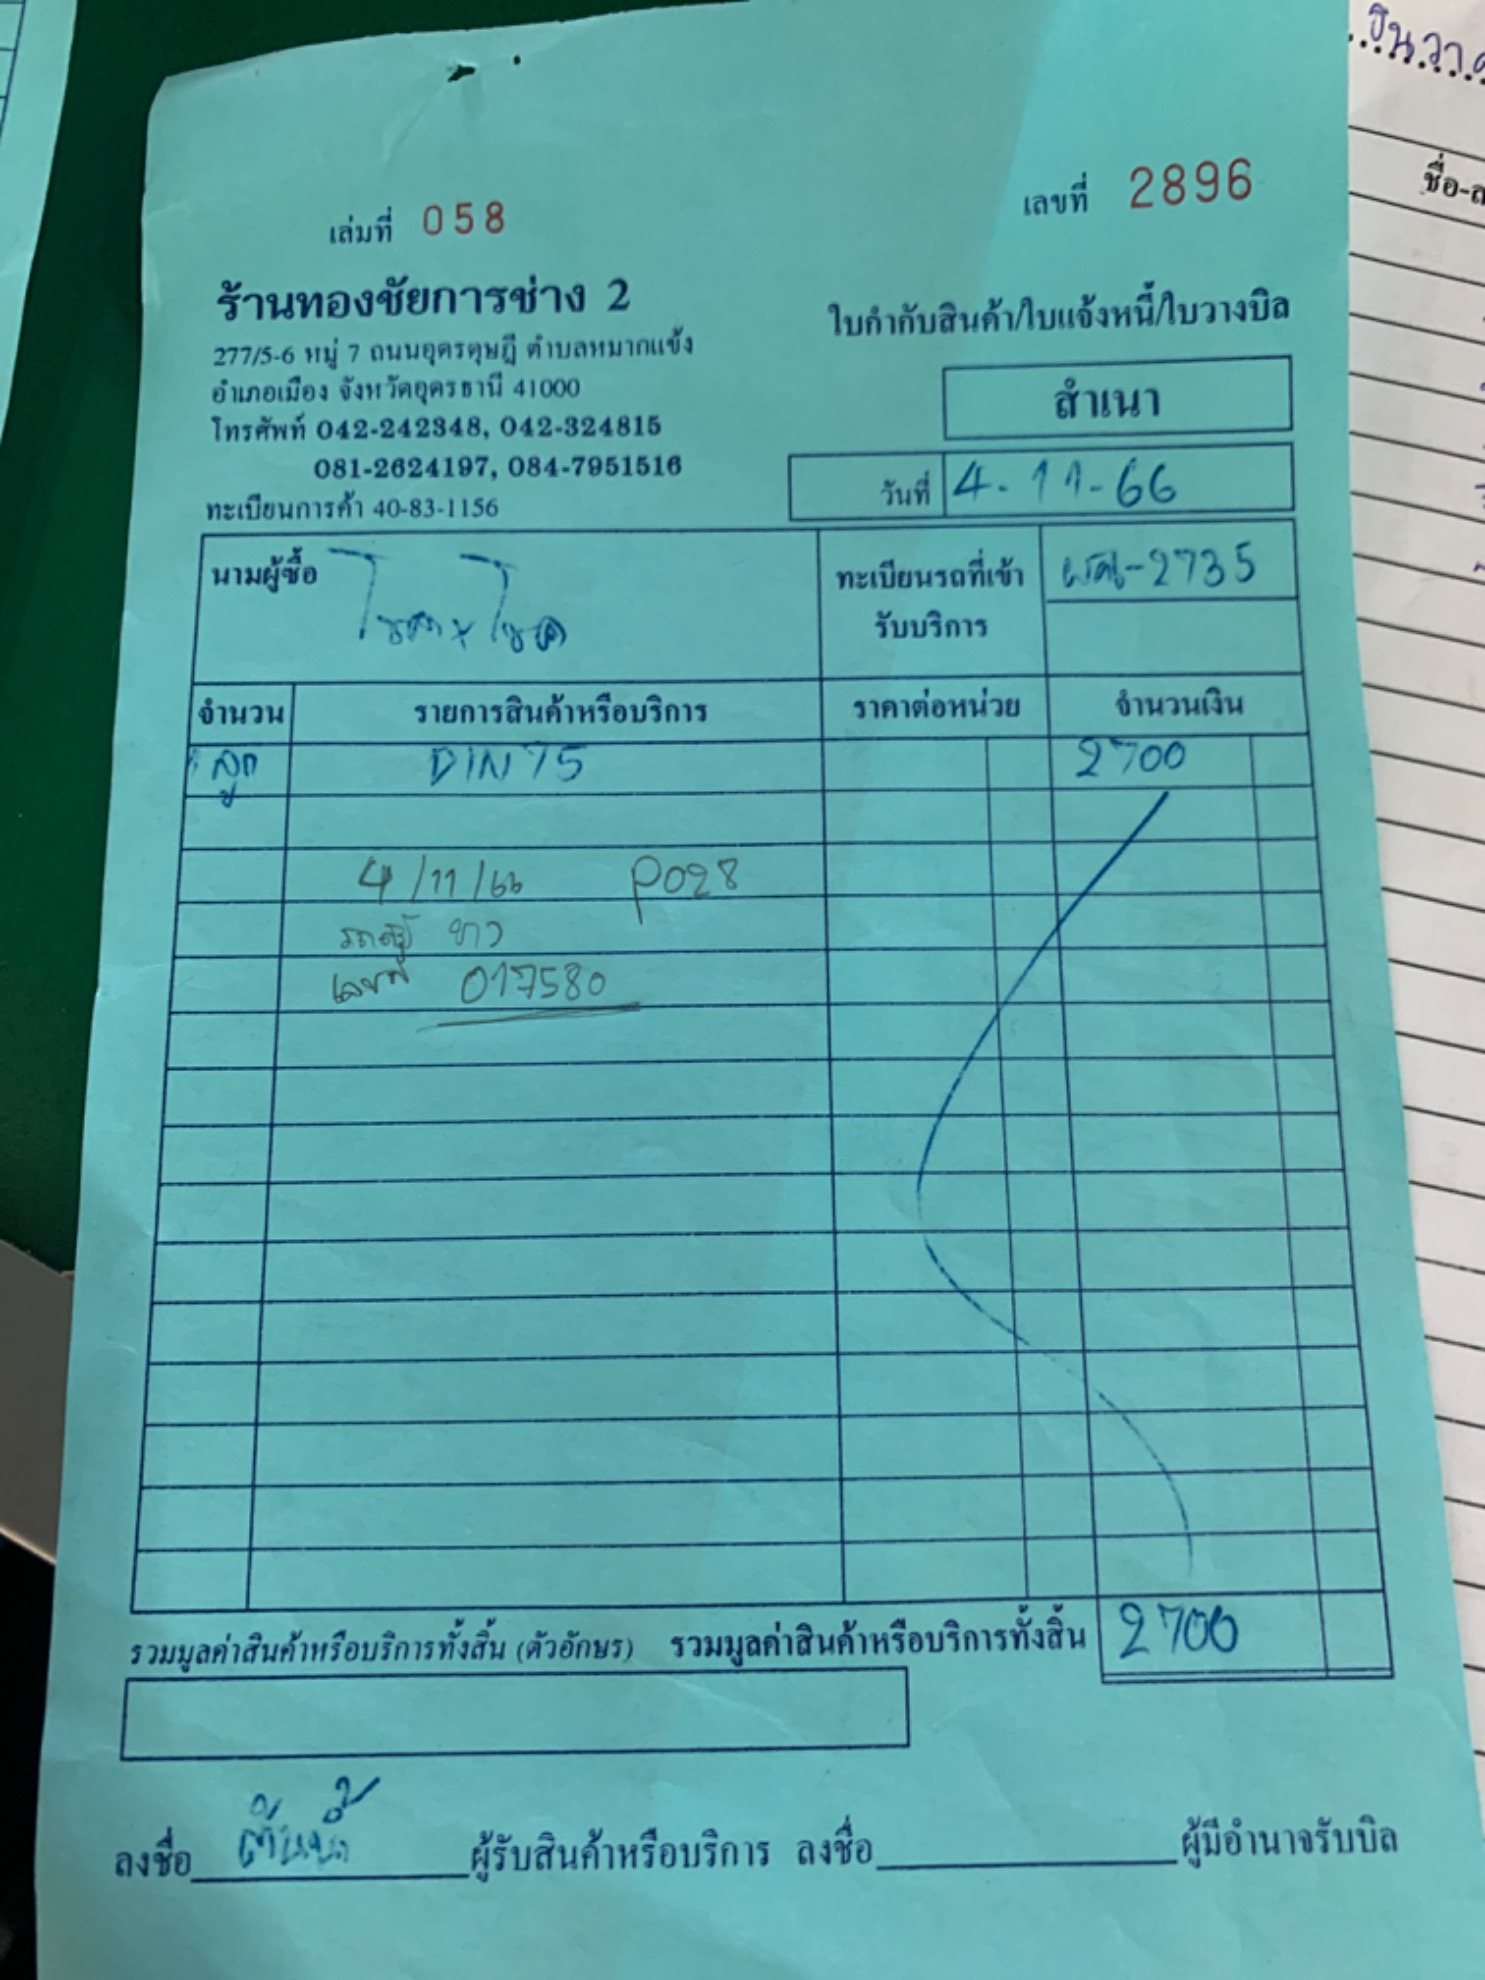 เล่มที่ 058
เลขที่ 2896
ร้านทองชัยการช่าง 2
277/5-6 หมู่ 7 ถนนอุดรดุษฎี ตำบลหมากแข้ง
อำเภอเมือง จังหวัดอุดรธานี 41000
โทรศัพท์ 042-242348, 042-324815
081-2624197, 084-7951516
ทะเบียนการค้า 40-83-1156
ใบกำกับสินค้า/ใบแจ้งหนี้/ใบวางบิล
สำเนา
วันที่ 4-11-66
นามผู้ซื้อ
ทะเบียนรถที่เข้า
รับบริการ
-2735
จำนวน รายการสินค้าหรือบริการ ราคาต่อหน่วย จำนวนเงิน
ลูก DIN 75 2700
4/11/66 P028
รถตู้ ขาว
เลขที่ 017580
รวมมูลค่าสินค้าหรือบริการทั้งสิ้น (ตัวอักษร) รวมมูลค่าสินค้าหรือบริการทั้งสิ้น 2700
ลงชื่อ ผู้รับสินค้าหรือบริการ ลงชื่อ ผู้มีอำนาจรับบิล